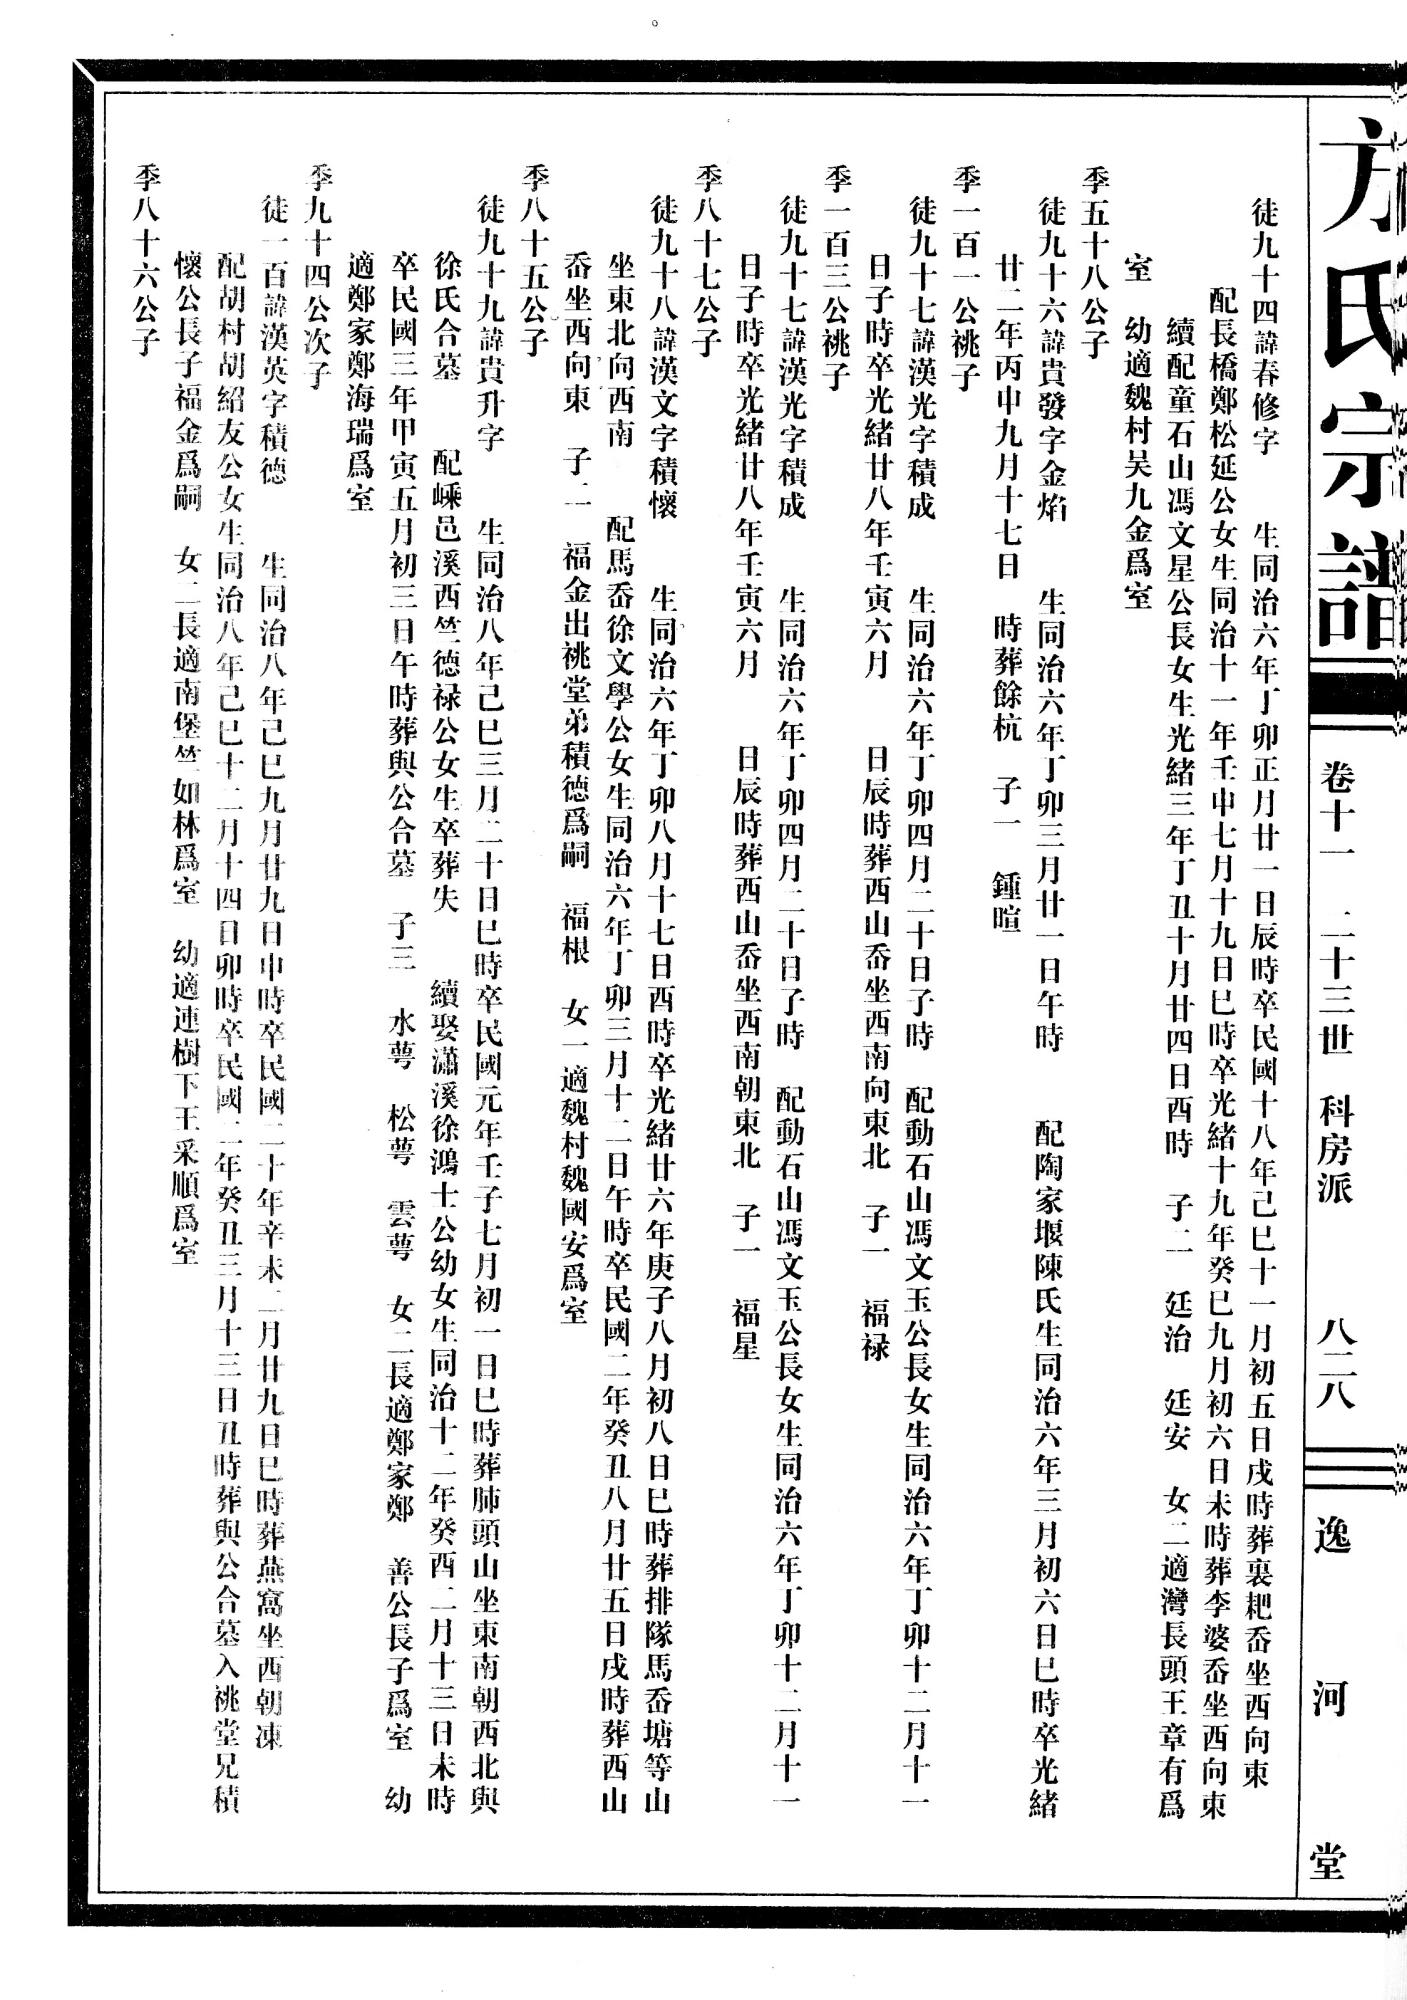 方氏宗譜
卷十一 二十三世 科房派 八二八
逸河堂
徒九十四諱春修字 生同治六年丁卯正月廿一日辰時卒民國十八年己巳十一月初五日戌時葬裏耙岙坐西向東
配長橋鄭松延公女生同治十一年壬申七月十九日巳時卒光緒十九年癸巳九月初六日未時葬李婆岙坐西向東
續配童石山馮文星公長女生光緒三年丁丑十月廿四日酉時 子二 廷治 廷安 女二適灣長頭王章有爲
室 幼適魏村吴九金爲室
季五十八公子
徒九十六諱貴發字金焰 生同治六年丁卯三月廿一日午時 配陶家堰陳氏生同治六年三月初六日巳時卒光緒
廿二年丙申九月十七日 時葬餘杭 子一 鍾暄
季一百一公祧子
徒九十七諱漢光字積成 生同治六年丁卯四月二十日子時 配動石山馮文玉公長女生同治六年丁卯十二月十一
日子時卒光緒廿八年壬寅六月 日辰時葬西山岙坐西南向東北 子一 福禄
季一百三公祧子
徒九十七諱漢光字積成 生同治六年丁卯四月二十日子時 配動石山馮文玉公長女生同治六年丁卯十二月十一
日子時卒光緒廿八年壬寅六月 日辰時葬西山岙坐西南朝東北 子一 福星
季八十七公子
徒九十八諱漢文字積懷 生同治六年丁卯八月十七日酉時卒光緒廿六年庚子八月初八日巳時葬排隊馬岙塘等山
坐東北向西南 配馬岙徐文學公女生同治六年丁卯三月十二日午時卒民國二年癸丑八月廿五日戌時葬西山
岙坐西向東 子二 福金出祧堂弟積德爲嗣 福根 女一適魏村魏國安爲室
季八十五公子
徒九十九諱貴升字 生同治八年己巳三月二十日巳時卒民國元年壬子七月初一日巳時葬肺頭山坐東南朝西北與
徐氏合墓 配嵊邑溪西竺德禄公女生卒葬失 續娶瀟溪徐鴻士公幼女生同治十二年癸酉二月十三日未時
卒民國三年甲寅五月初三日午時葬與公合墓 子三 水萼 松萼 雲萼 女二長適鄭家鄭 善公長子爲室 幼
適鄭家鄭海瑞爲室
季九十四公次子
徒一百諱漢英字積德 生同治八年己巳九月廿九日申時卒民國二十年辛未二月廿九日巳時葬燕窩坐西朝凍
配胡村胡紹友公女生同治八年己巳十二月十四日卯時卒民國二年癸丑三月十三日丑時葬與公合墓入祧堂兄積
懷公長子福金爲嗣 女二長適南堡竺如林爲室 幼適連樹下王采順爲室
季八十六公子